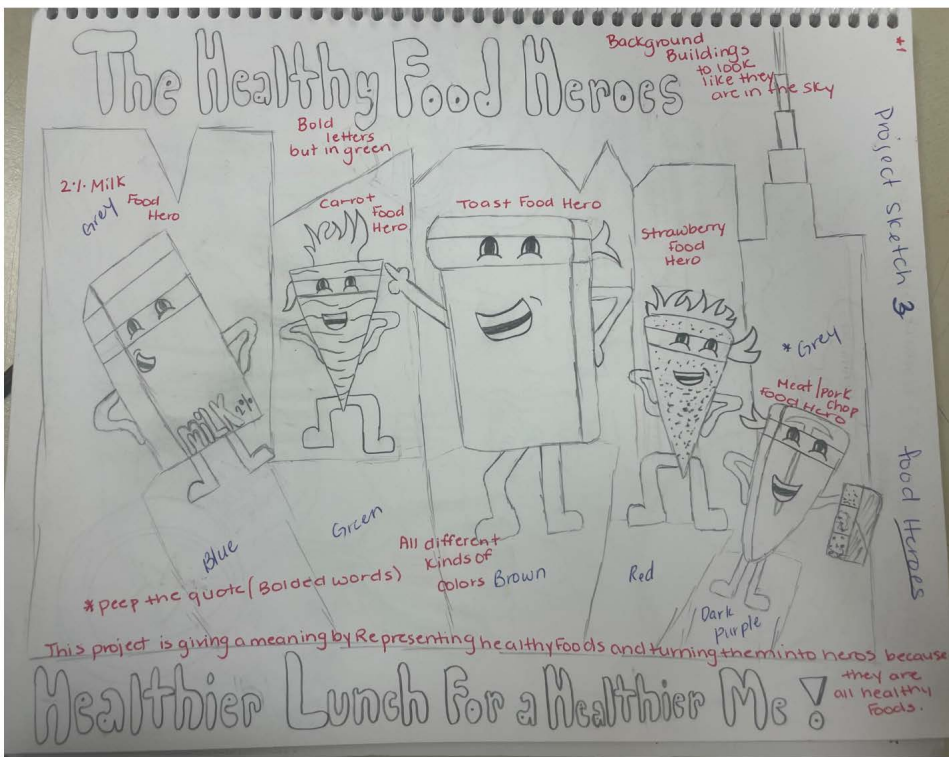 The Healthy Food Heroes
Background
Buildings
to look
like they
are in the sky
*1
Project Sketch 3
food Heroes
Bold
letters
but in green
2% Milk
Food
Hero
Grey
Carrot
Food
Hero
Toast Food Hero
Strawberry
Food
Hero
* Grey
Meat/pork
chop
Food Hero
MILK 2%
Blue
Green
All different
kinds of
colors
Brown
Red
Dark
Purple
*peep the quote (Bolded words)
This project is giving a meaning by Representing healthy foods and turning them into heros because
they are
all healthy
Foods.
Healthier Lunch For a Healthier Me!